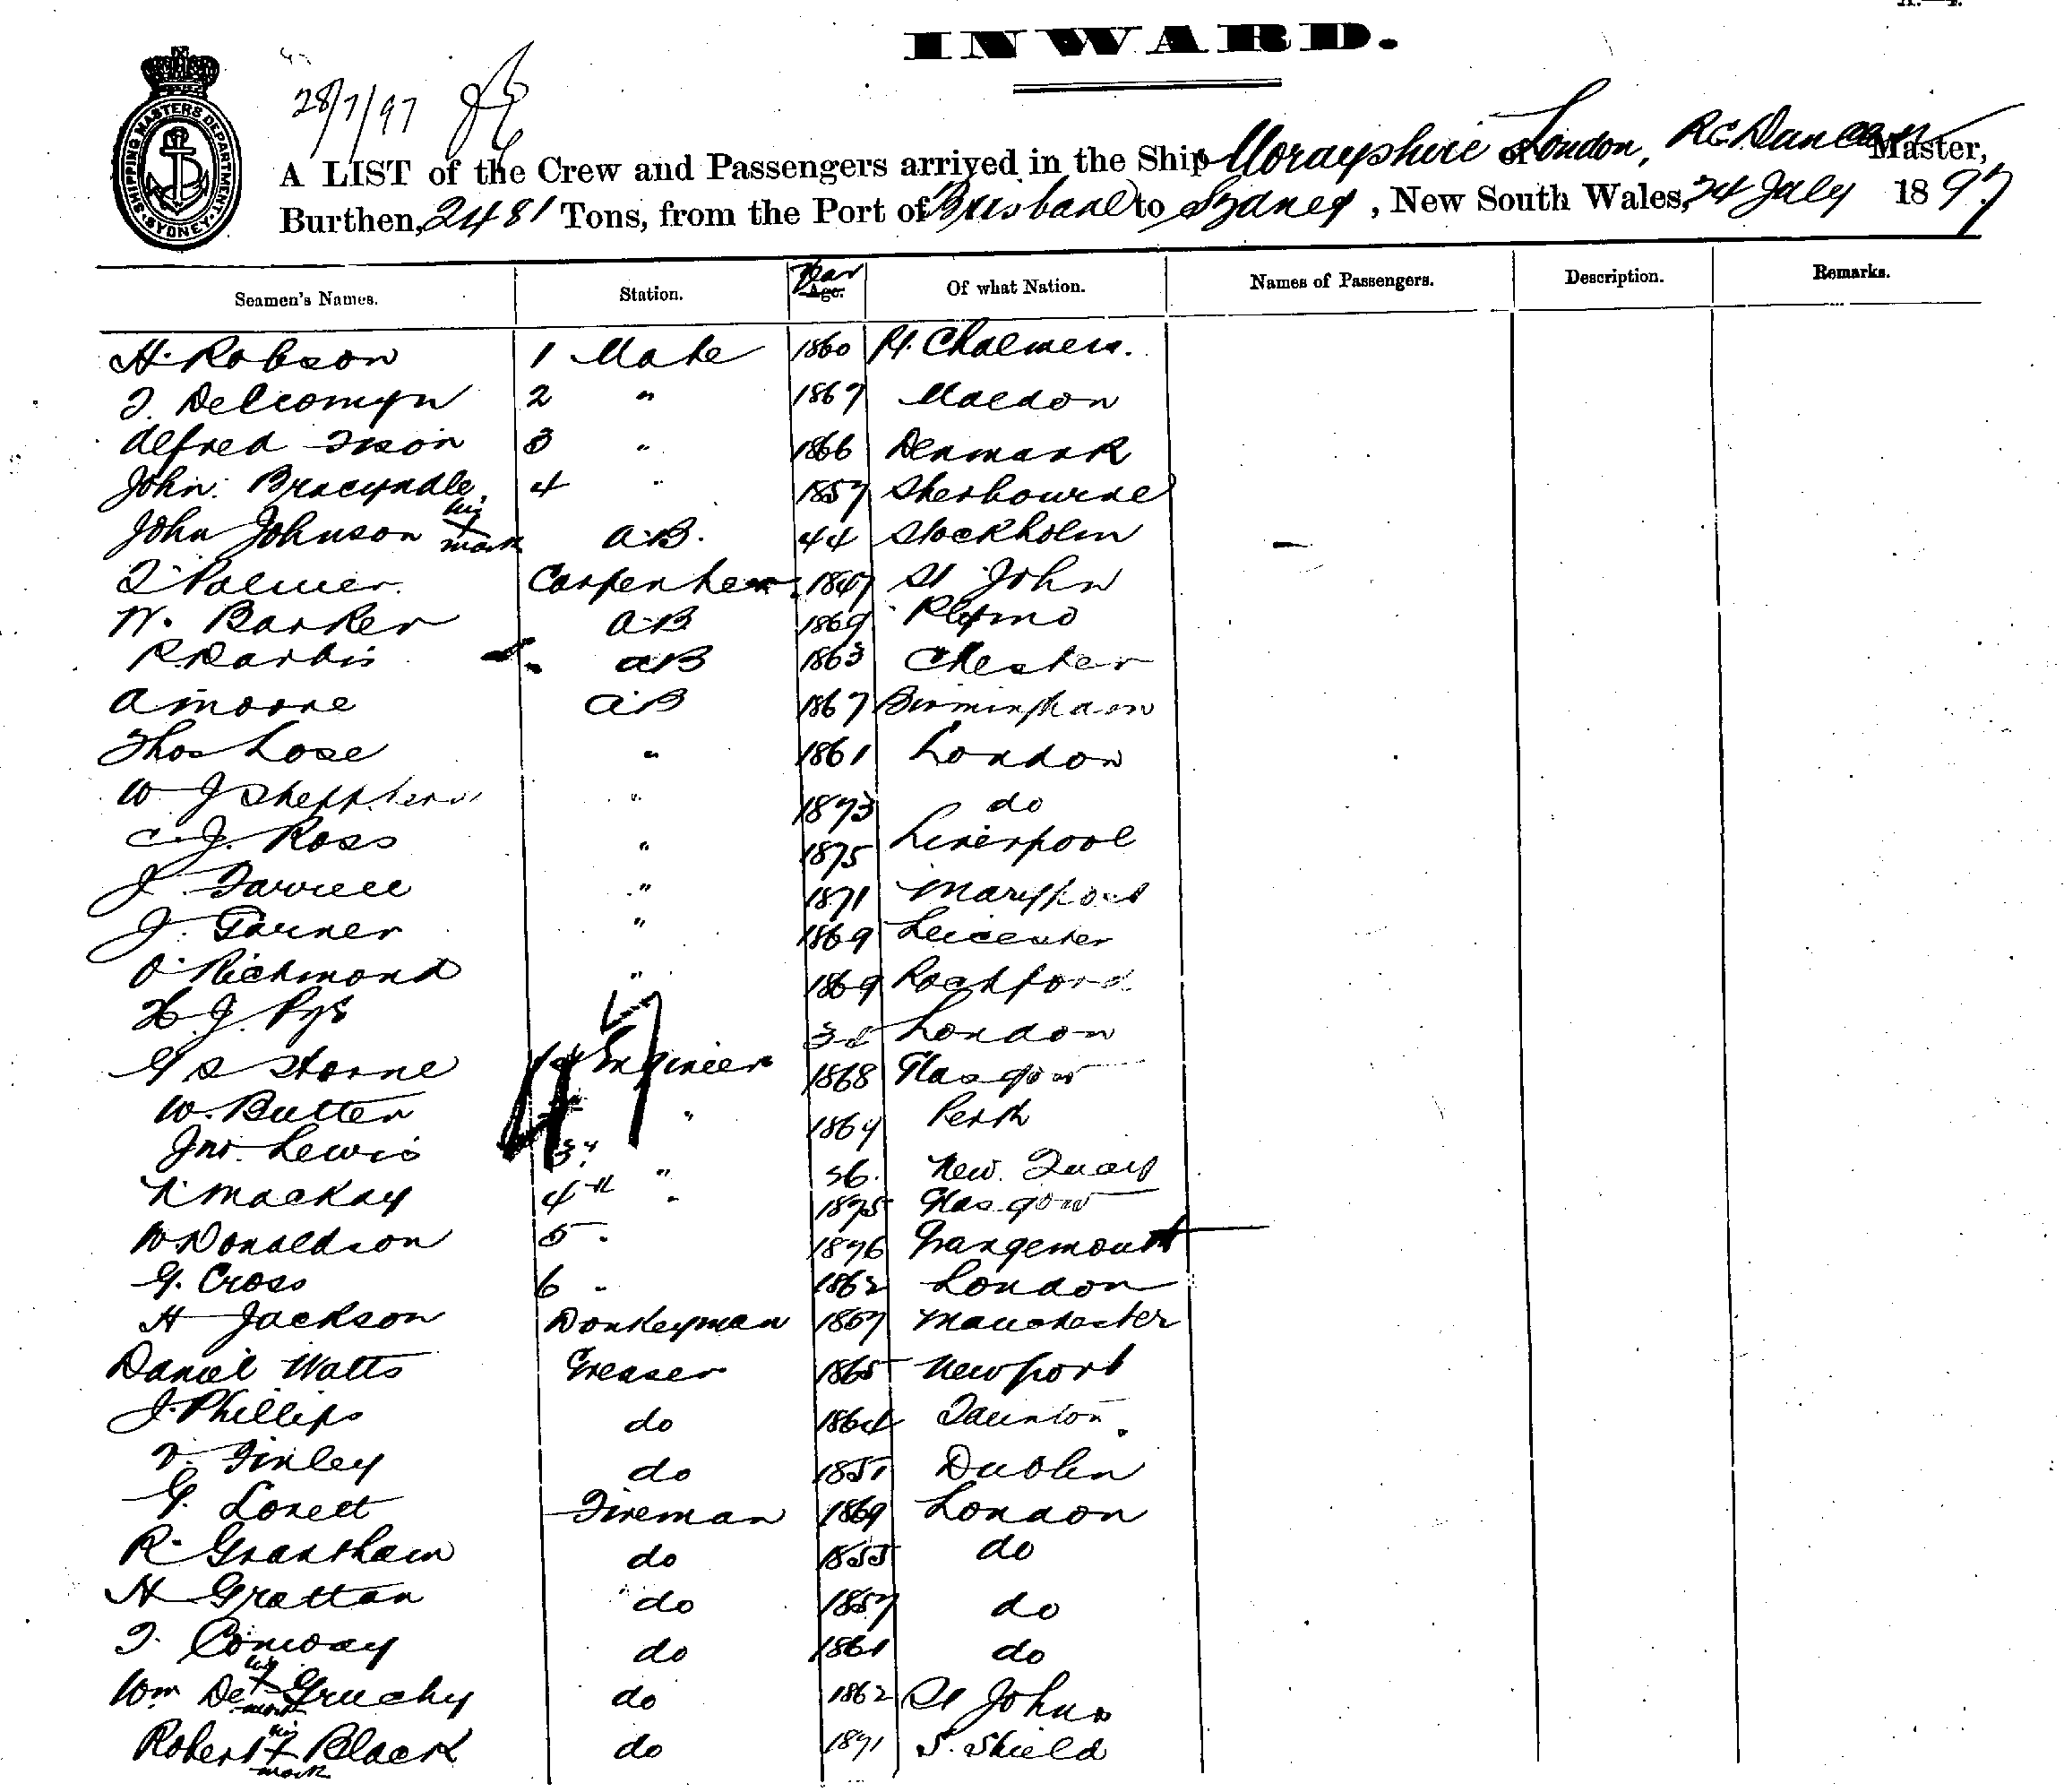 INWARD.
28/7/97
SHIPPING MASTERS DEPARTMENT. SYDNEY
A LIST of the Crew and Passengers arrived in the Ship Morayshire of London, R.C. Duncan Master,
Burthen, 2481 Tons, from the Port of Brisbane to Sydney, New South Wales, 24 July 1897
Seamen's Names. Station. Year Age. Of what Nation. Names of Passengers. Description. Remarks.
H. Robson 1 Mate 1860 Pt. Chalmers.
T. Delcomyn 2 " 1867 Maldon
Alfred 3 " 1866 Denmark
John Bracyndle 4 " 1857 Sherbourne
John Johnson his X mark A.B. 44 Stockholm
T. Palmer Carpenter 1847 St John
W. Barker A.B. 1869
R. Darbis A.B 1863 Chester
A Moore A.B 1867 Birmingham
Thos Lose " 1861 London
W J Shepherd " 1873 do
C. J. Ross " 1875 Liverpool
J. Farrell " 1871 Maryport
J. Turner " 1869 Leicester
O. Richmond " 1869 Rochford
H. J. Pye " London
G S Storne 1st Engineer 1868 Glasgow
W. Butter " 1864 Perth
Jno. Lewis 3rd " 36. New Quay
R. Mackay 4th " 1875 Glasgow
W. Donaldson 5 " 1876 Grangemouth
G. Cross 6 " 1862 London
H Jackson Donkeyman 1867 Manchester
Daniel Watts Greaser 1865 Newport
J. Phillips do 1864 Taunton
T. Finley do 1851 Dublin
G. Lovett Fireman 1869 London
R. Grantham do 1855 do
H Grattan do 1857 do
T. Conway do 1861 do
Wm De Gruchy his X mark do 1862 St Johns
Robert Black his X mark do 1871 S. Shield